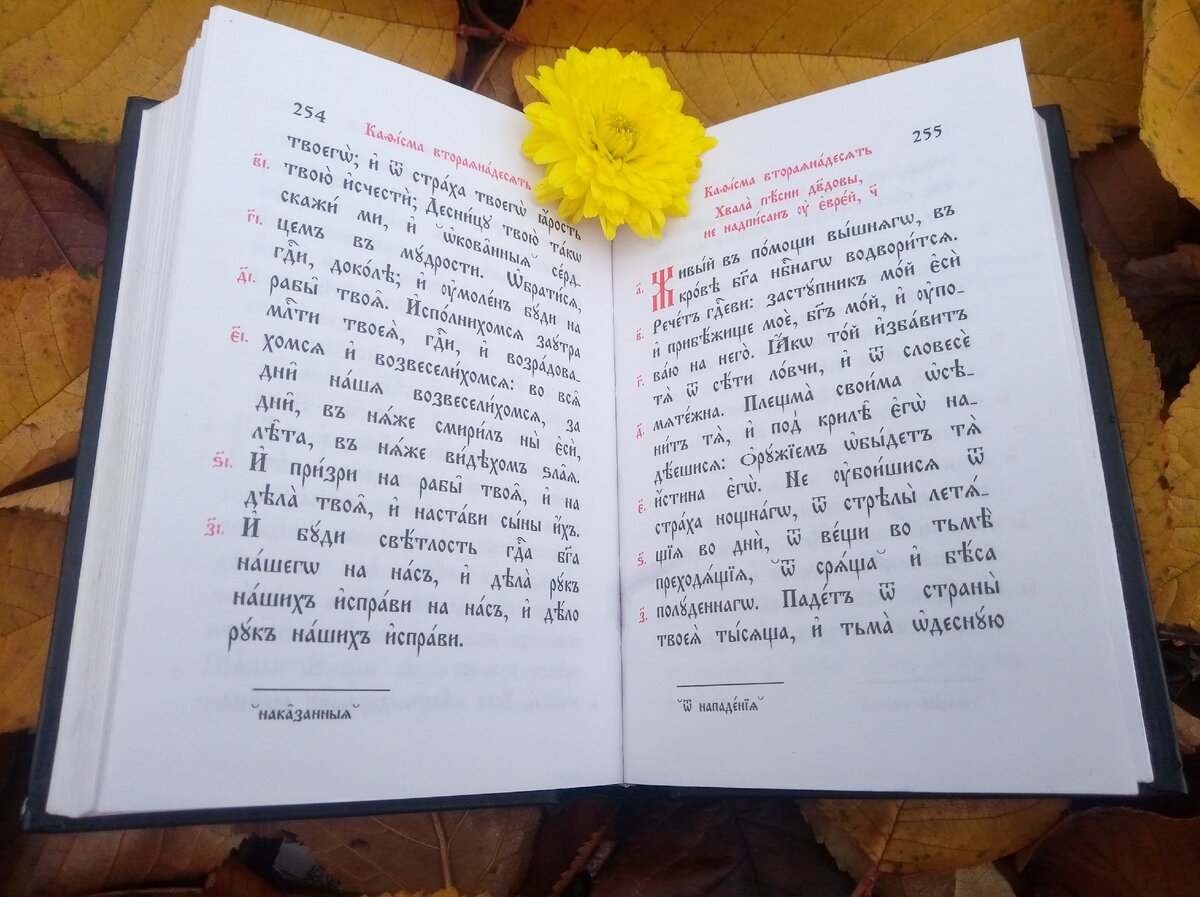 254
Каѳі́сма втораяна́десѧть
твоегѡ̀; и҆ ѿ стра́ха твоегѡ̀ ꙗ҆́рость
в҃і. твою̀ и҆счестѝ; Десни́цу твою̀ та́кѡ
скажи́ ми, и҆ ѡ҆кова̑нныѧ се́рд-
г҃і. цемъ въ мꙋ́дрости. Ѡ҆брати́сѧ,
гдⷭ҇и, доко́лѣ; и҆ ᲂу҆моле́нъ бꙋ́ди на
д҃і. рабы̑ твоѧ̑. И҆спо́лнихомсѧ заꙋ́тра
млⷭ҇ти твоеѧ̀, гдⷭ҇и, и҆ возра́дова-
є҃і. хомсѧ и҆ возвесели́хомсѧ: во всѧ̑
дни̑ на́шѧ возвесели́хомсѧ, за
дни̑, въ нѧ́же смири́лъ ны̀ є҆сѝ,
лѣ̑та, въ нѧ́же ви́дѣхомъ ѕла̑ѧ.
ѕ҃і. И҆ при́зри на рабы̑ твоѧ̑, и҆ на
дѣла̀ твоѧ̑, и҆ наста́ви сы́ны и҆́хъ.
з҃і. И҆ бꙋ́ди свѣ́тлость гдⷭ҇а бг҃а
на́шегѡ на на́съ, и҆ дѣла̀ рꙋ́къ
на́шихъ и҆спра́ви на на́съ, и҆ дѣ́ло
рꙋ́къ на́шихъ и҆спра́ви.
наказа̑нныѧ
255
Каѳі́сма втораяна́десѧть
Хвала̀ пѣ́сни дв҃довы,
не надпи́санъ ᲂу҆ є҆вре́й, ч҃
а҃. Живы́й въ по́мощи вы́шнѧгѡ, въ
кро́вѣ бг҃а нбⷭ҇нагѡ водвори́тсѧ.
в҃. Рече́тъ гдⷭ҇еви: застꙋ́пникъ мо́й є҆сѝ
и҆ прибѣ́жище моѐ, бг҃ъ мо́й, и҆ ᲂу҆по-
г҃. ва́ю на него̀. Ꙗ҆́кѡ то́й и҆зба́витъ
тѧ̀ ѿ сѣ́ти ло́вчи, и҆ ѿ словесѐ
д҃. мѧте́жна. Плещма̀ свои́ма ѡ҆сѣ-
ни́тъ тѧ̀, и҆ под̾ крилѣ̑ є҆гѡ̀ на-
дѣ́ешисѧ: Ѻ҆рꙋ́жїемъ ѡ҆бы́детъ тѧ̀
є҃. и҆́стина є҆гѡ̀. Не ᲂу҆бои́шисѧ ѿ
стра́ха нощна́гѡ, ѿ стрѣлы̀ летѧ́-
ѕ҃. щїѧ во днѝ, ѿ ве́щи во тьмѣ̀
преходѧ́щїѧ, ѿ срѧ́ща и҆ бѣ́са
з҃. полꙋ́деннагѡ. Паде́тъ ѿ страны̀
твоеѧ̀ ты́сѧща, и҆ тьма̀ ѡ҆деснꙋ́ю
ѿ нападе́нїѧ